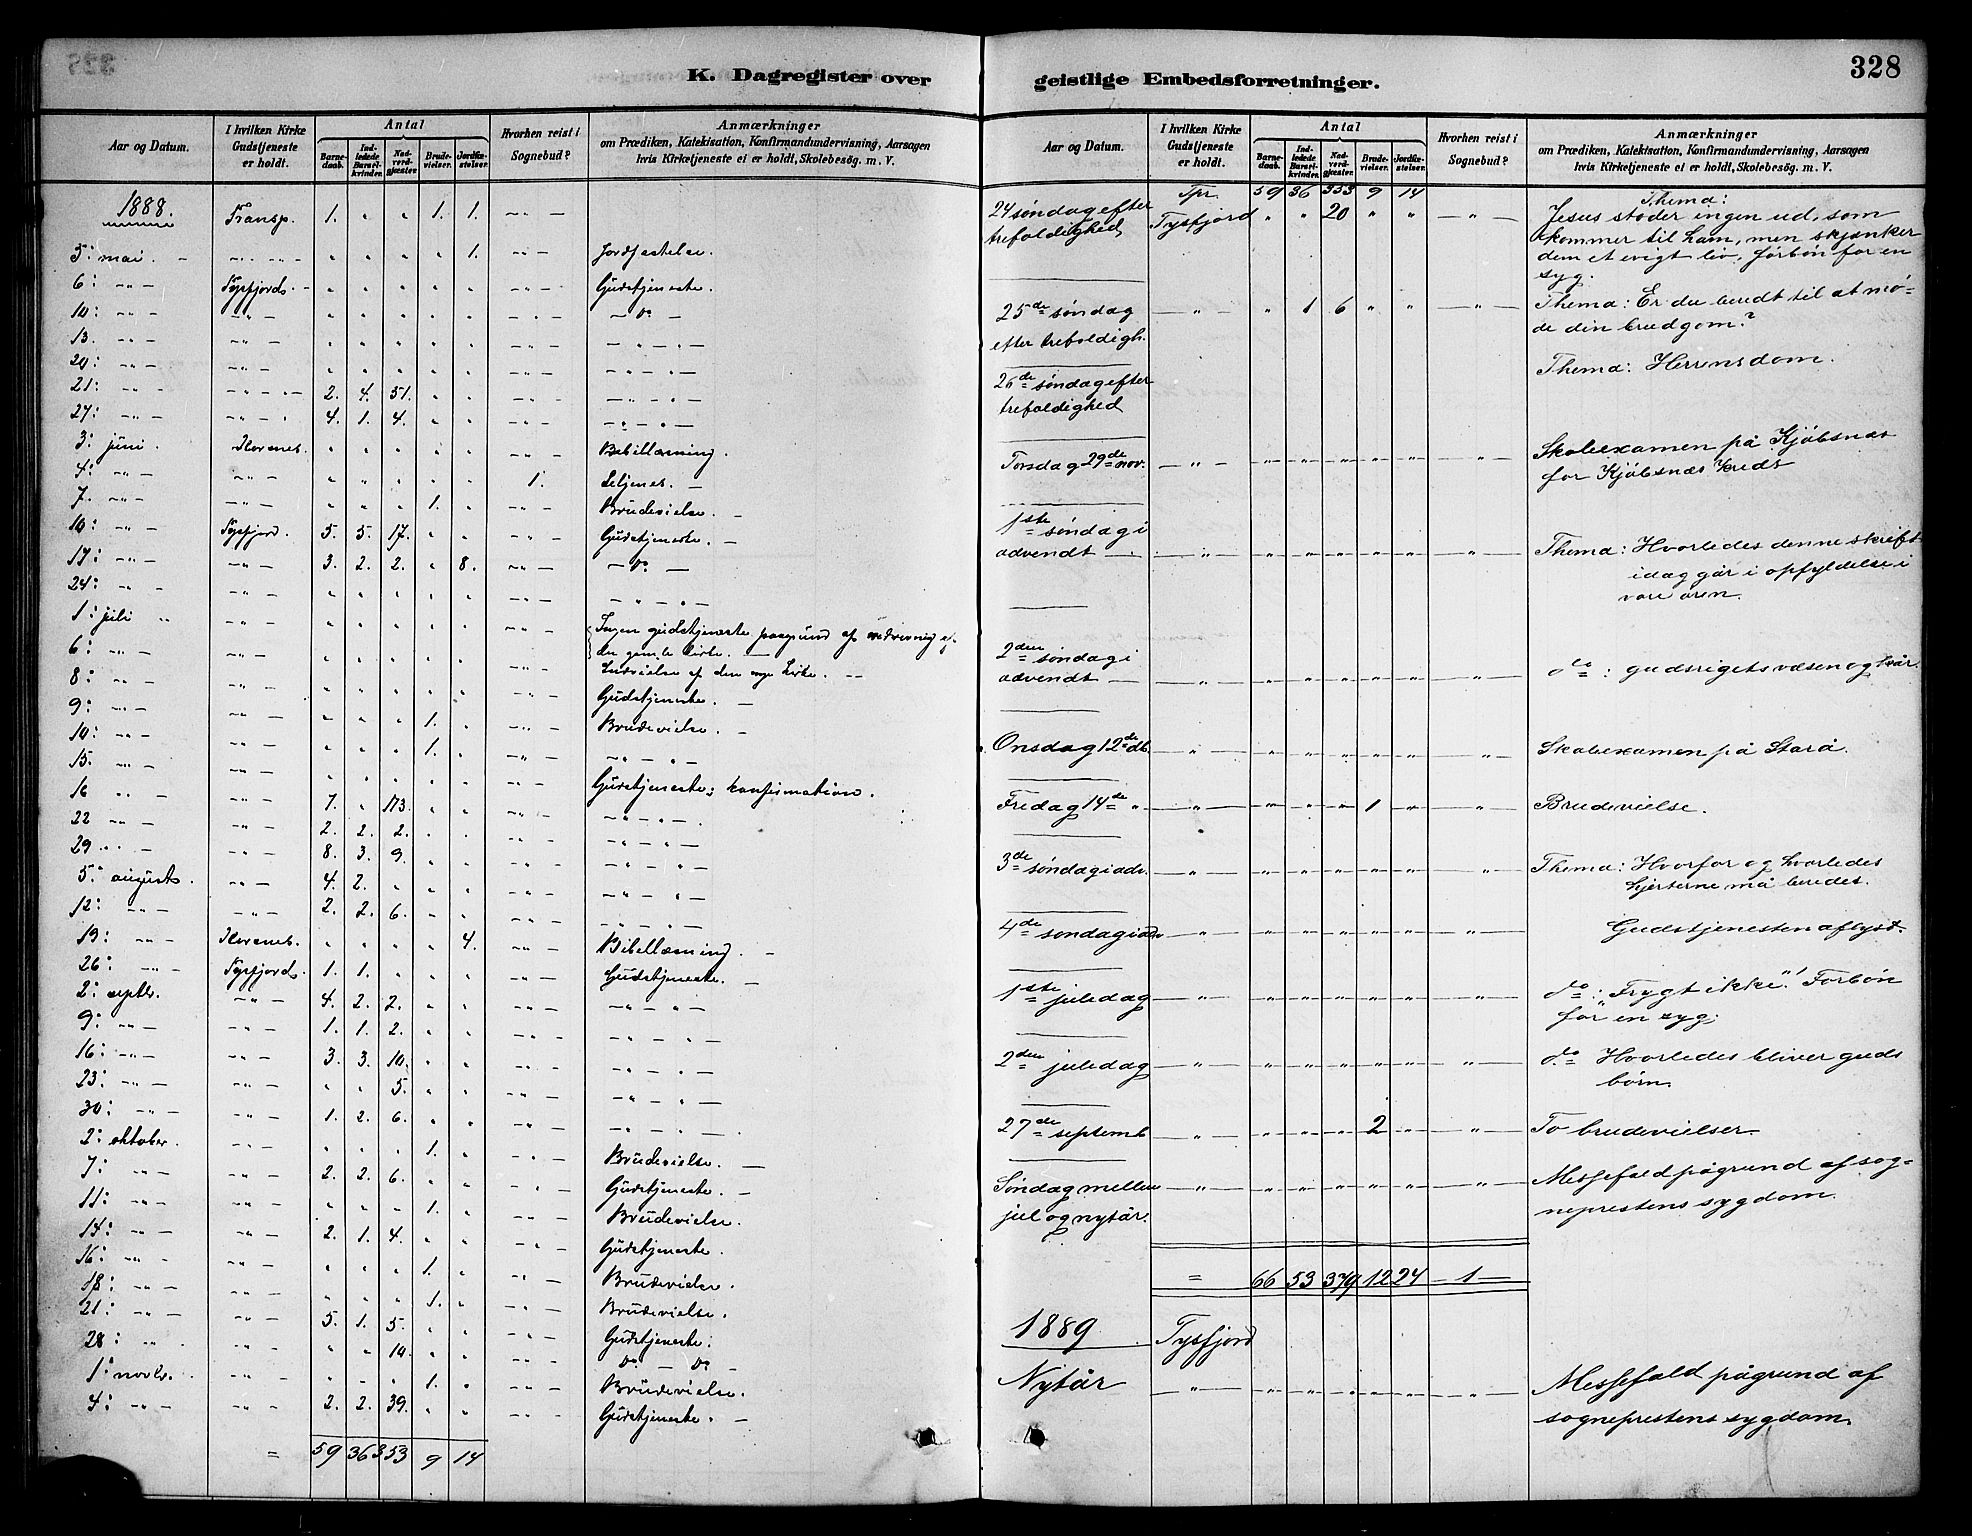 K. Dagregister over geistlige Embedsforretninger.
328
Aar og Datum. | I hvilken Kirke Gudstjeneste er holdt. | Antal | Barnedaab. | Indledede Barselkvinder. | Nadverdgjæster. | Brudevielser. | Jordfæstelser. | Hvorhen reist i Sognebud? | Anmærkninger om Prædiken, Katekisation, Konfirmandundervisning, Aarsagen hvis Kirketjeneste ei er holdt, Skolebesøg. m. V.
1888. Transp. 1. " " 1. 1. -"-
5: mai - -"- " " " " 1. -"- Jordfestelse.
6: -"- Tysfjord. " " " " " -"- Gudstjeneste.
10: -"- -"- " " " " " -"- - Do -
13. -"- -"- " " " " " -"- -"-"-
20: -"- -"- " " " " " -"- -"-"-
21: -"- -"- 2. 4. 51. " " -"- -"-"-
27: -"- -"- 4. 1. 4. " " -"- -"-"-
3: juni. " " " " " -"- Bibellæsning.
4: -"- -"- " " " " " 1.
7. -"- -"- " " " 1. " -"- Brudevielse. -
10: -"- Tysfjord. 5. 5. 17. " " -"- Gudstjeneste. -
17: -"- -"- 3. 2. 2. " 8. -"- - Do -
24: -"- -"- " " " " " -"- -"-"-
1: juli " -"- " " " " " -"- Ingen gudstjeneste paagrund af nedrivning af
6: -"- -"- " " " " " -"- den gamle kirke. -
8: -"- -"- " " " " " -"- Indvielse af den nye kirke. -
9: -"- -"- " " " 1. " -"- Gudstjeneste. -
10: -"- -"- " " " 1. " -"- Brudevielse. -
15. -"- -"- " " " " " -"- -"-"-
16 -"- -"- 7. " 173. " " -"- Gudstjeneste; konfirmation.
22 -"- -"- 2. 2. 2. " " -"- -"-"-
29 -"- -"- 8. 3. 9. " " -"- -"-"-
5: augusts. -"- 4. 2. " " " -"- -"-"-
12: -"- -"- 2. 2. 6. " " -"- -"-"-
19: -"- " " " " 4. -"- Bibellæsning. -
26: -"- Tysfjord. 1. 1. " " " -"- Gudstjeneste. -
2: septbr. -"- 4. 2. 2. " " -"- -"-"-
9: -"- -"- 1. 1. 2. " " -"- -"-"-
16: -"- -"- 3. 3. 10. " " -"- -"-"-
23: -"- -"- " " 5. " " -"- -"-"-
30: -"- -"- 1. 2. 6. " " -"- -"-"-
2: oktober. -"- " " " 1. " -"- Brudevielse. -
7: -"- -"- 2. 2. 6. " " -"- Gudstjeneste. -
11: -"- -"- " " " 1. " -"- Brudevielse.
14: -"- -"- 2. 1. 4. " " -"- Gudstjeneste.
16: -"- -"- " " " 1. " -"- Brudevielse.
18: -"- -"- " " " 1. " -"- Brudevielse.
21: -"- -"- 5. 1. 5. " " -"- Gudstjeneste.
28: -"- -"- " " 10. " " -"- Do - Do -
1: novbr. -"- " " " 1. " -"- Brudevielse.
4: -"- -"- 2. 2. 39. " " -"- Gudstjeneste. -
= 59 36 353 9 14
Aar og Datum. | I hvilken Kirke Gudstjeneste er holdt. | Antal | Barnedaab. | Indledede Barselkvinder. | Nadverdgjæster. | Brudevielser. | Jordfæstelser. | Hvorhen reist i Sognebud? | Anmærkninger om Prædiken, Katekisation, Konfirmandundervisning, Aarsagen hvis Kirketjeneste ei er holdt, Skolebesøg. m. V.
Tpr. 59 36 353 9 14 Thema:
24 søndag efter Tysfjord " " 20 " " -"- Jesus støder ingen ud, som
trefoldighed kommer til ham, men skjænker
dem et evigt liv, forbøn for en
syg.
25de søndag -"- " 1 6 " " -"- Thema: Er du beredt til at mø-
efter trefoldigh. de din brudgom?
26de søndag efter Thema: Herrens dom.
trefoldighed
Torsdag 29de nov. -"- " " " " " -"- Skoleexamen på Kjøbsnæs
for Kjøbsnæs kreds
1ste søndag i
advendt -"- " " " " " " Thema: Hvorledes denne skrift
idag går i opfyldelse i
vore øren.
2den søndag i
advendt -"- " " " " " " do: gudsrigets væsen og kår.
Onsdag 12de db. " " " " " " " Skoleexamen på Storå.
Fredag 14de " -"- " " " 1 " " Brudevielse.
3de søndag i adv. " " " " " " " Thema: Hvorfor og hvorledes
hjerterne må beredes.
4de søndag i adv " " " " " " " Gudstjenesten aflyst.
1ste juledag " " " " " " " do: "Frygt ikke"! Forbøn
for en syg;
2den juledag " " " " " " " do Hvorledes bliver guds
børn.
27de septemb. " " " " 2 " " To brudevielser
Søndag mellem " " " " " " " Messefald pågrund af sog-
jul og nytår. neprestens sygdom.
= 66 53 379 12 24 -1-
1889 Tysfjord
Nytår -"- " " " " " -"- Messefald pågrund af
sogneprestens sygdom.